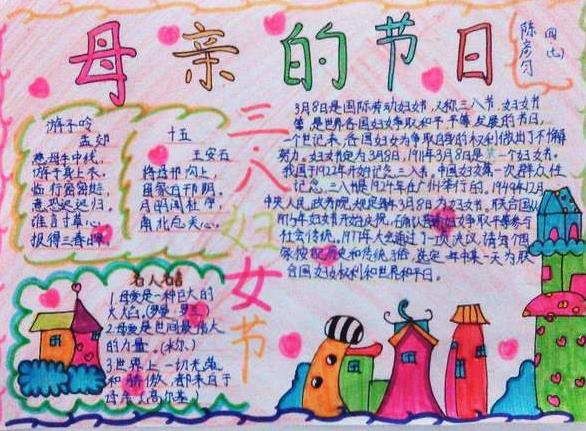 母亲的节日
四(七)
陈彦匀
三八妇女节
游子吟
孟郊
慈母手中线，
游子身上衣。
临行密密缝，
意恐迟迟归。
谁言寸草心，
报得三春晖。
十五
王安石
将母邗沟上，
留家白邗阴。
月明闻杜宇，
南北总关心。
3月8日是国际劳动妇女节，又称三八节、妇女节
等，是世界各国妇女争取和平、平等、发展的节日。
一个世纪来，各国妇女为争取自身的权利做出了不懈
努力。妇女节定为3月8日，1911年3月8日是第一个妇女节。
我国于1922年开始纪念三八来，中国妇女第一次群众性
纪念三八节是1924年在广州举行的。1949年12月
中央人民政务院规定每年3月8日为妇女节。联合国从
1975年妇女节开始庆祝，
社会传统。1977年大会通过了一次决议，请每个国
家按照历史和传统习俗，选定一年中某一天为联
合国妇女权利和世界和平日。
名人名言
1.母爱是一种巨大的
火焰。(罗曼·罗兰)
2.母爱是世间最伟大
的力量。(米尔)
3.世界上一切光荣
和骄傲，都来自于
母亲(高尔基)